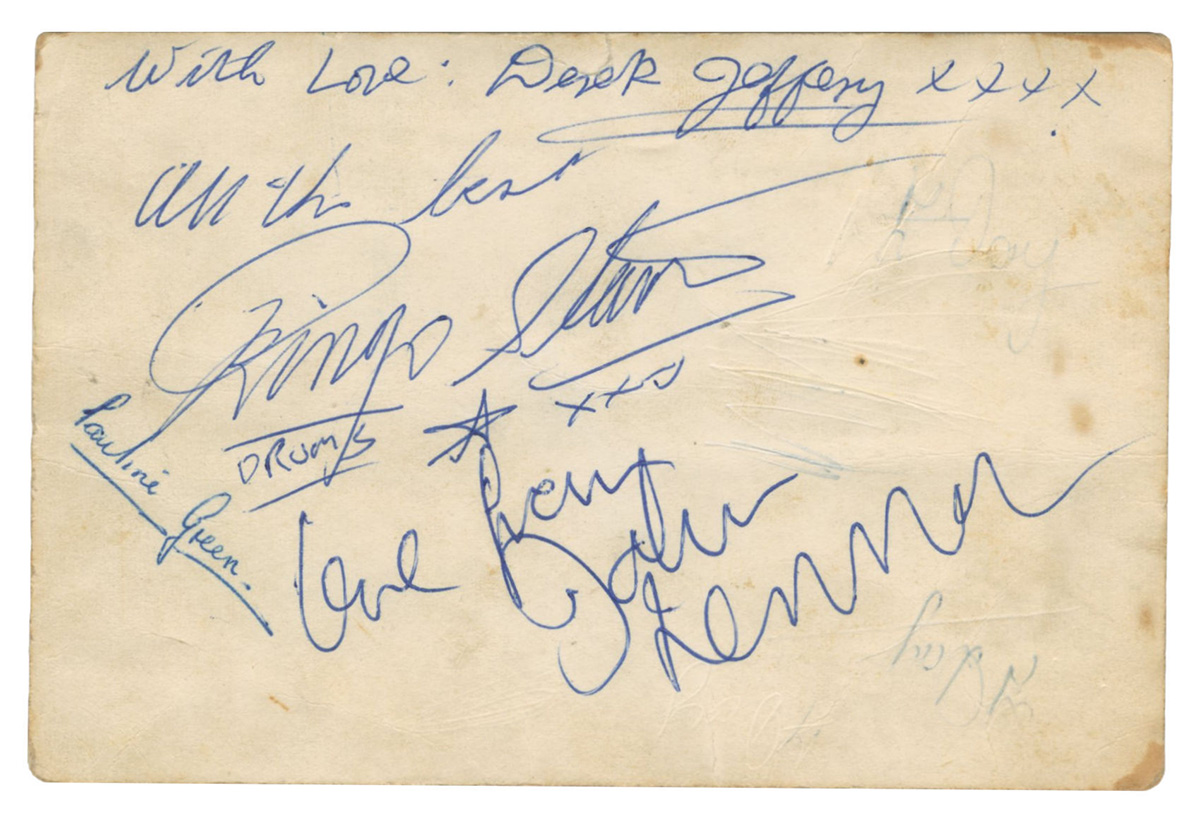 With Love: Derek Jeffery xxxx
All the best
Ringo Starr
xxx
DRUMS
Pauline Green.
love from
John
Lennon